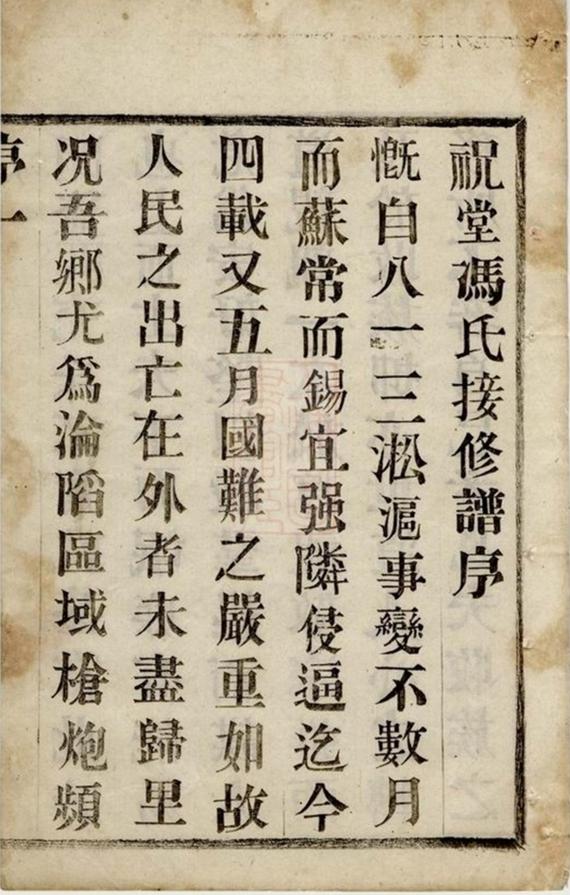 祝堂馮氏接修譜序
慨自八一三淞滬事變不數月
而蘇常而錫宜强隣侵逼迄今
四載又五月國難之嚴重如故
人民之出亡在外者未盡歸里
况吾鄉尤爲淪陷區域槍炮頻
序一